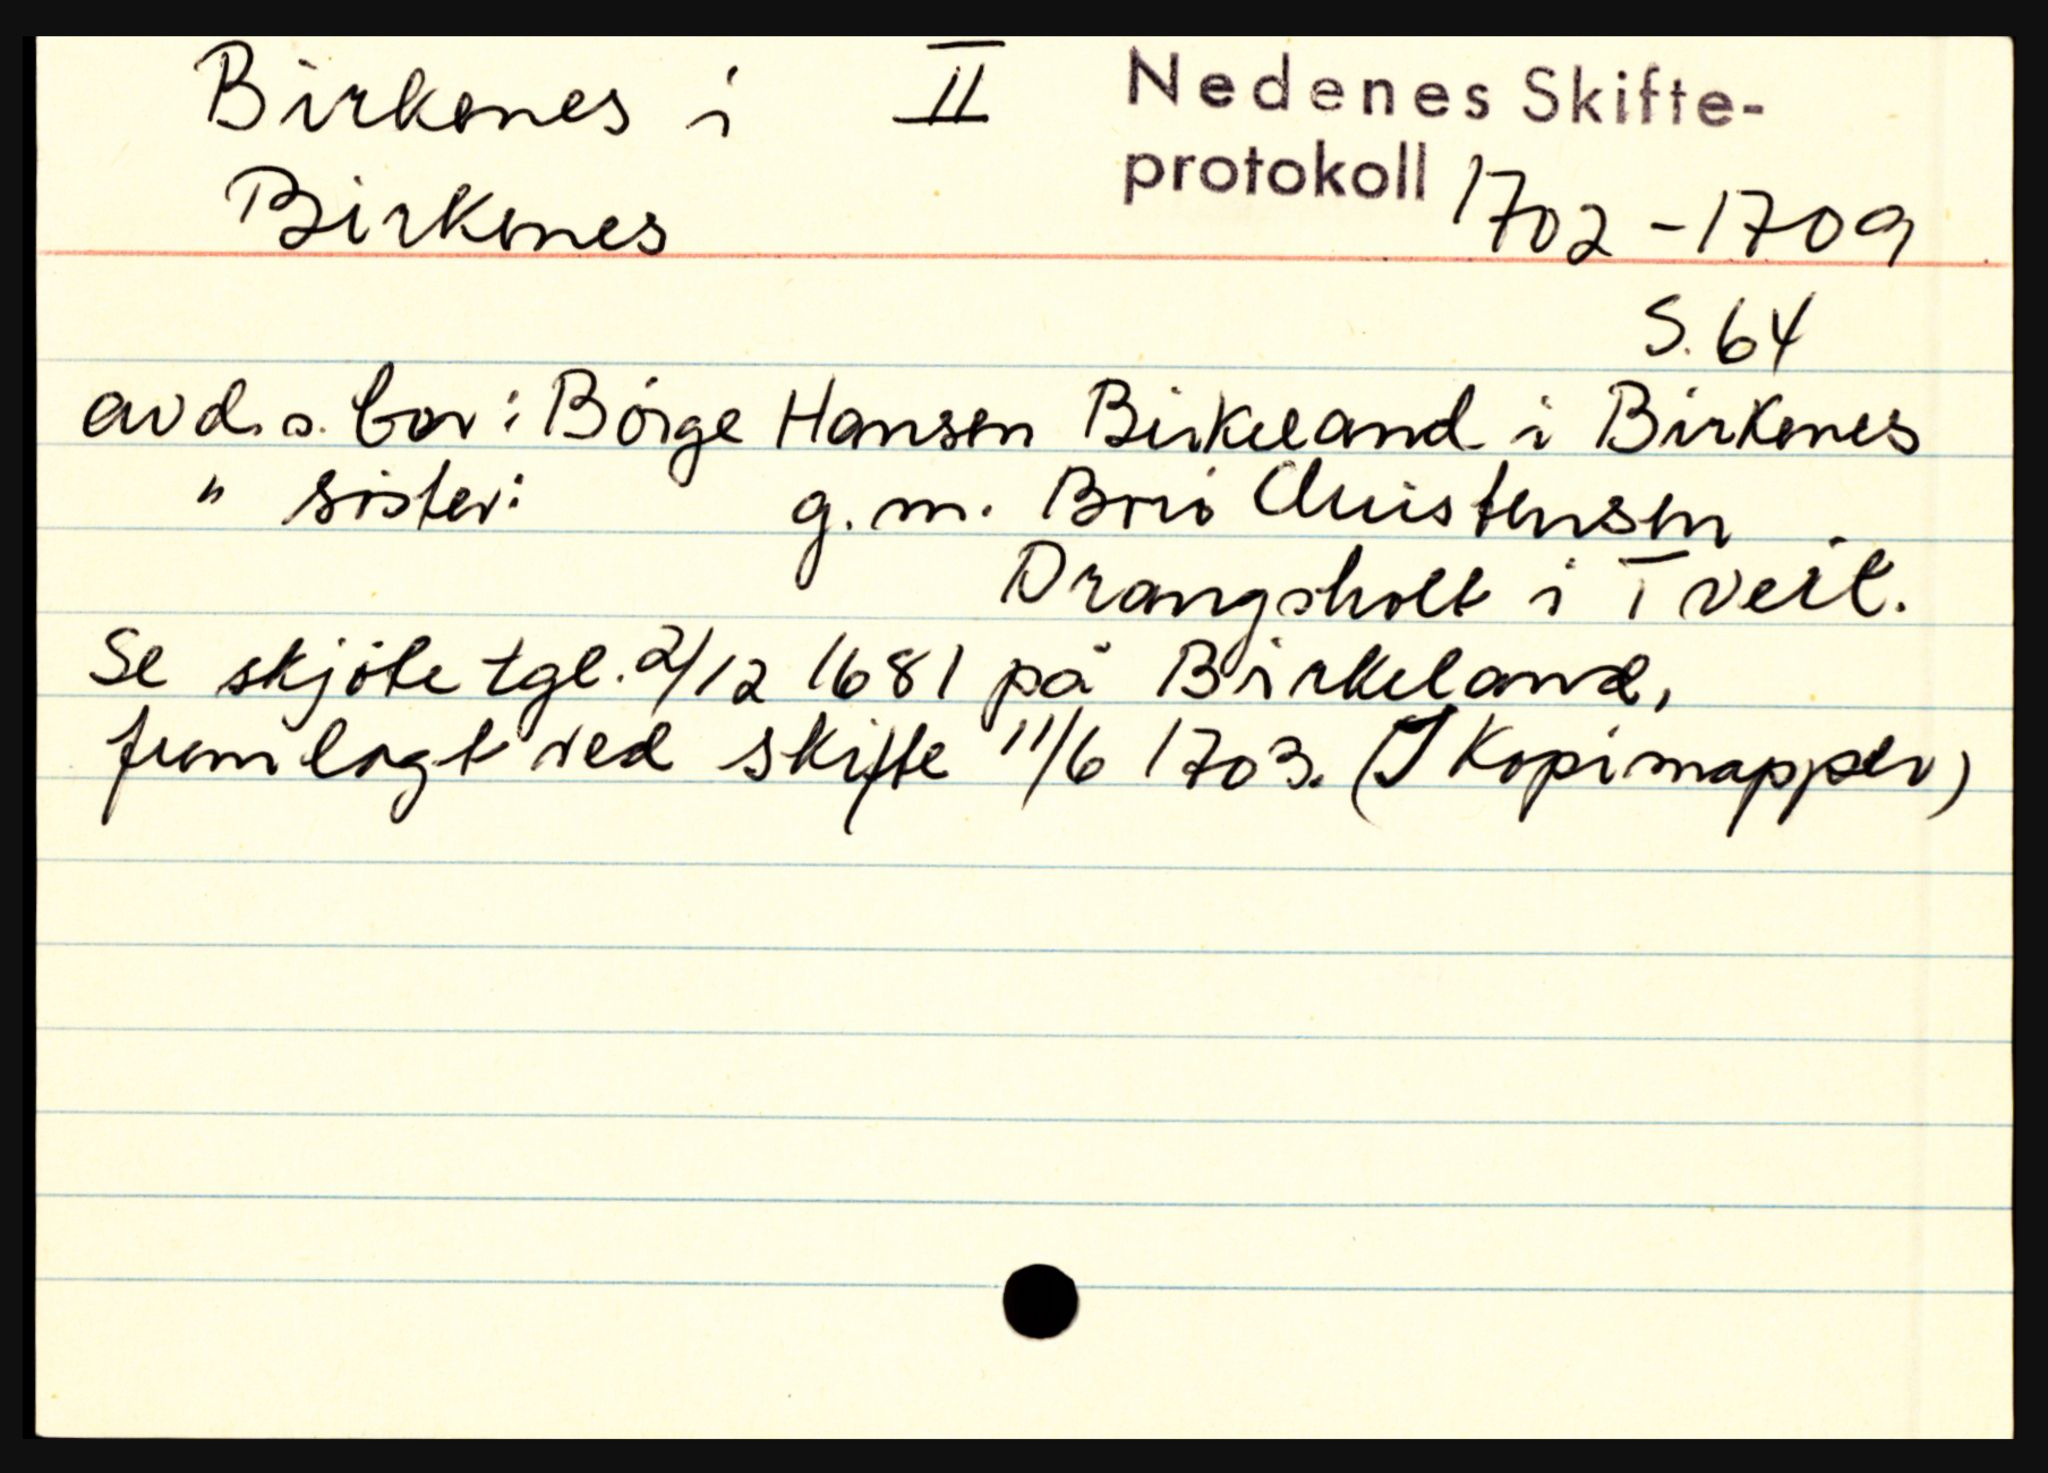 Birkenes i II Nedenes Skifte-
Birkenes protokoll 1702-1709
S. 64
avd.s. bor: Börge Hansen Birkeland i Birkenes
" sister: g.m. Christensen
Drangsholt i Tveit.
Se skjöte tgl. 2/12 1681 på Birkeland,
fremlagt ved skifte 11/6 1703. (I Kopimapper)